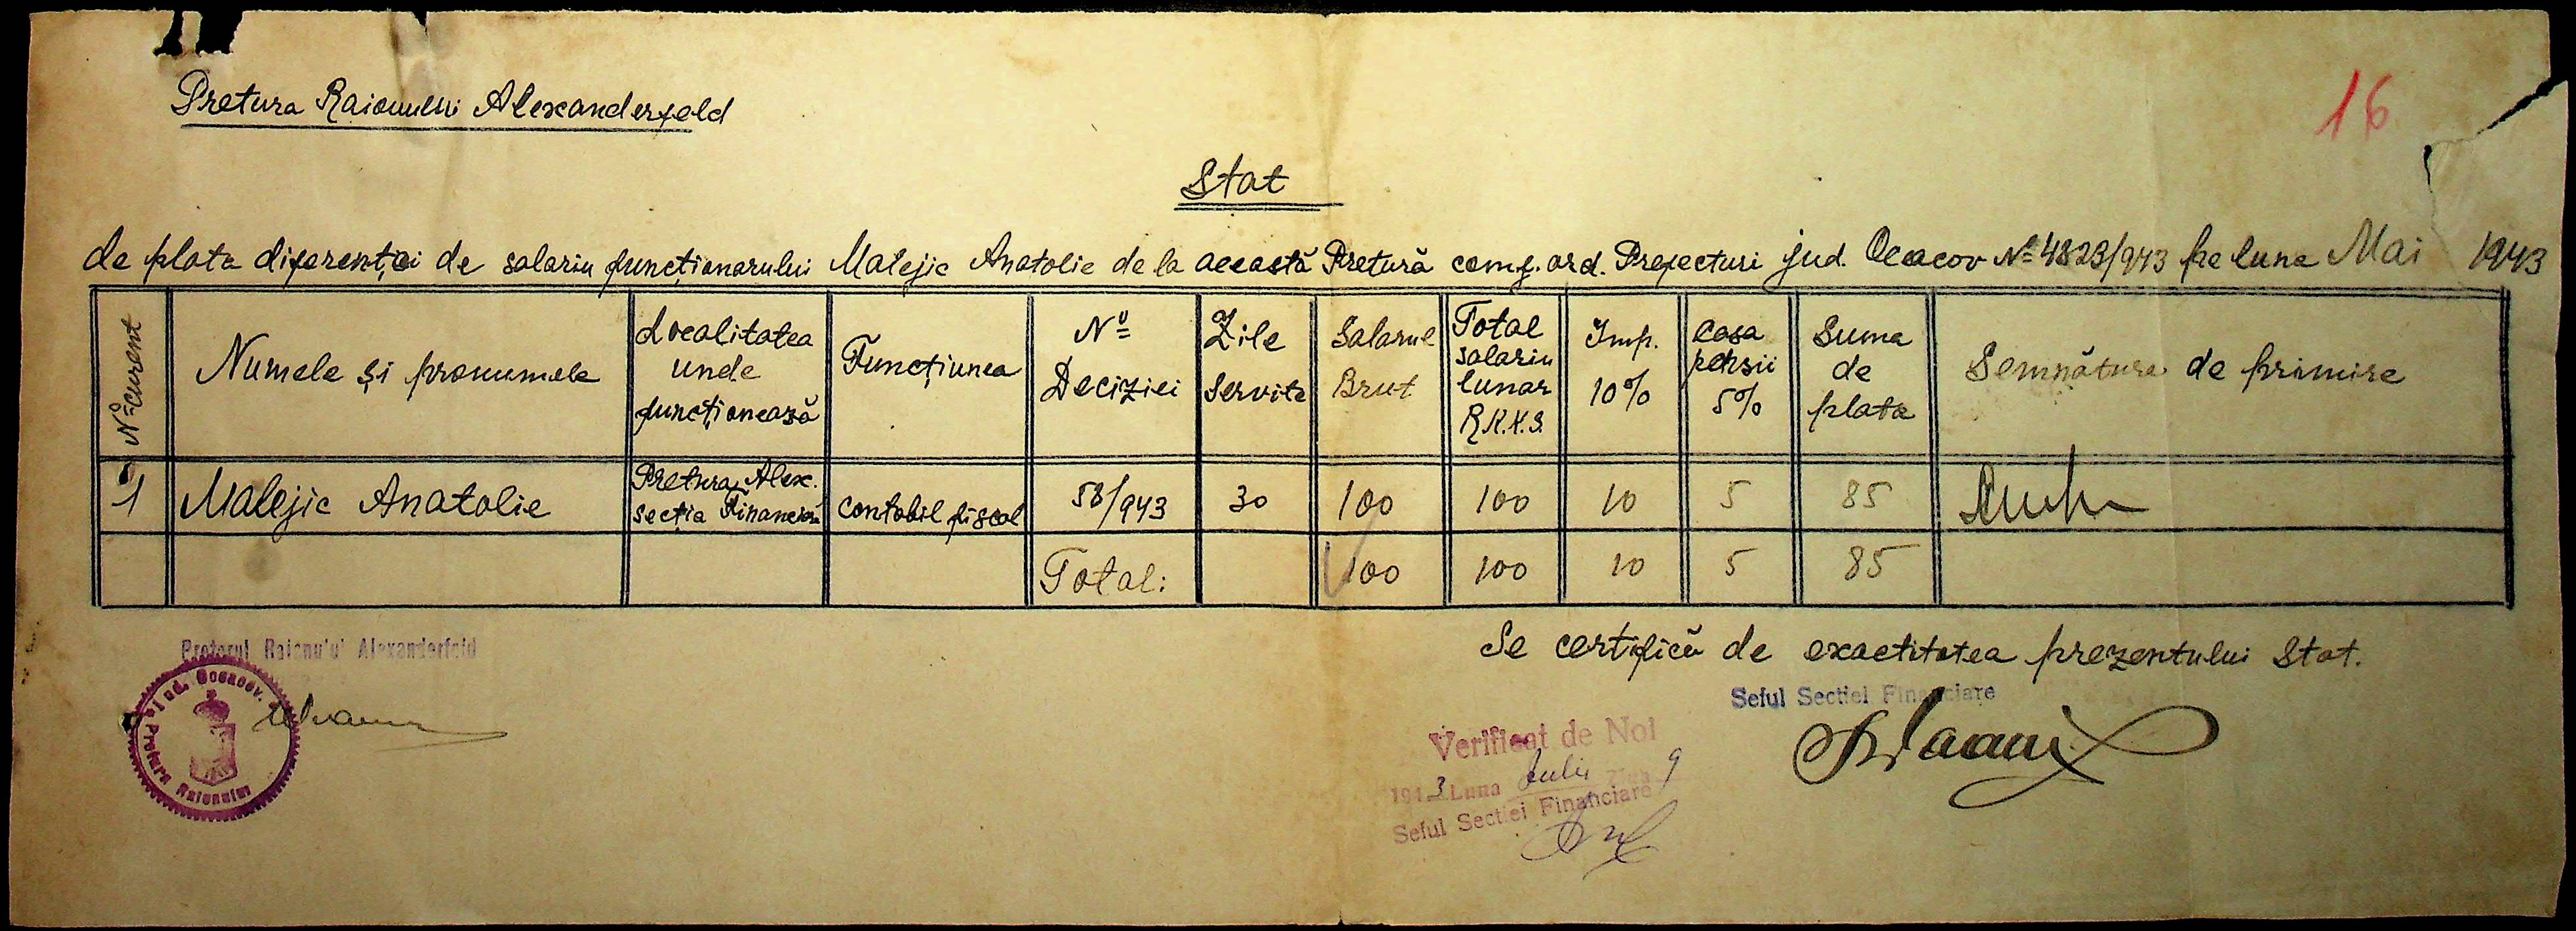 16
Pretura Raionului Alexanderfeld
Stat
de plata diferenței de salariu funcționarului Malejic Anatolie de la această Pretură conf. ord. Prefecturi jud. Oceacov Nº 4823/943 pe luna Mai 1943
Nº curent
Numele și pronumele
Localitatea
unde
funcționează
Funcțiunea
Nº
Deciziei
Zile
servite
Salarul
Brut
Total
salariu
lunar
R.K.K.S.
Imp.
10%
Casa
pensii
5%
Suma
de
plata
Semnătura de primire
1 Malejic Anatolie
Pretura Alex.
secția Financiară
contabil fiscal 58/943 30 100 100 10 5 85
Total: 100 100 10 5 85
Se certifică de exactitatea prezentului stat.
Pretorul Raionului Alexanderfeld
Jud. Oceacov.
Pretura Raionului
Seful Sectiei Financiare
Verificat de Noi
1943 Luna Iulie Ziua 9
Seful Sectiei Financiare